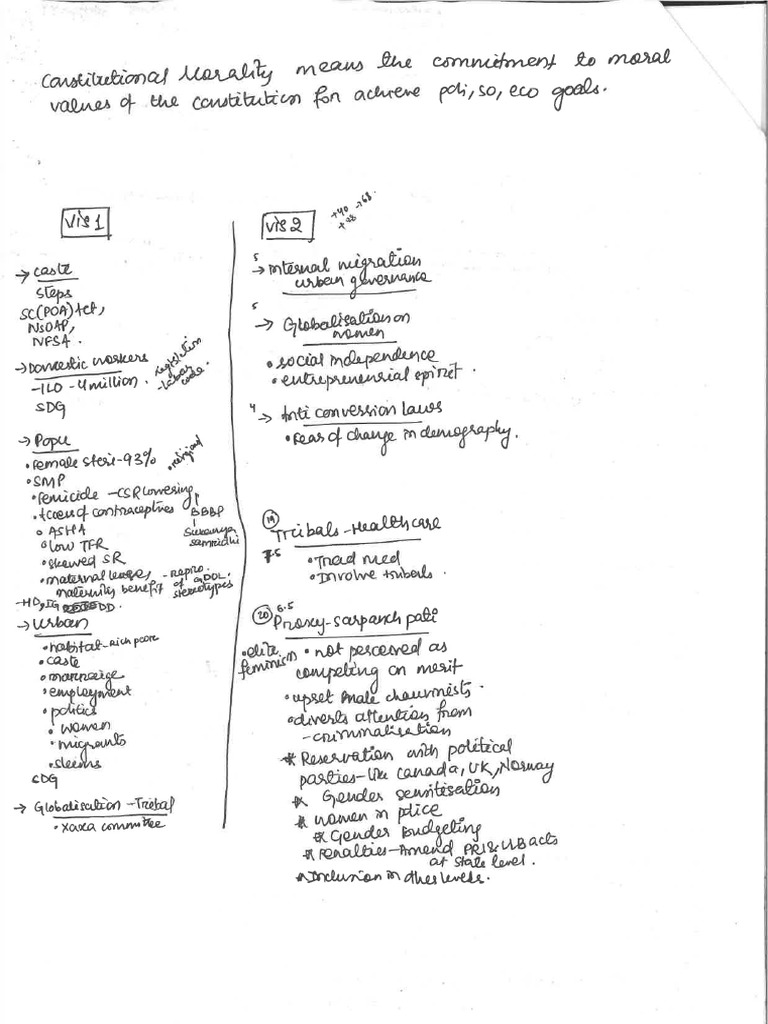 Constitutional Morality means the commitment to moral
values of the constitution for achieve poli, so, eco goals.
Vis 1
→ caste
steps
SC(POA) Act,
NSOAP,
NFSA.
→ Domestic workers
- ILO - 4 million.
registration
- labour code.
SDG
→ Popu
• female steri - 93%
• religion
• SMP
• femicide - CSR lowering
• focus of contraceptives
BBBP
Sukanya
samridhi
• ASHA
• low TFR
• skewed SR
• maternal leave,
maternity benefit
- repro.
of GDOL.
stereotypes
- HD, IG DD.
→ Urban
• habitat - rich poor
• caste
• marriage
• employment
• politics
• women
• migrants
• slums
SDG
→ Globalisation - Tribal
• xaxa committee
Vis 2
+40 → 68.
+28
5
→ Internal migration
urban governance
5
→ Globalisation on
women
• social independence
• entrepreneurial spirit.
4
→ Anti conversion laws
• fear of change in demography.
19
Tribals - Healthcare
7.5
• Trad med
• Involve tribals.
20 6.5
Proxy - sarpanch pati
• elite
feminism
• not perceived as
competing on merit
• upset male chauvinists.
• diverts attention from
- criminalisation
* Reservation with political
parties - like Canada, UK, Norway
* Gender sensitisation
* women in police
* Gender Budgeting
* Penalties - Amend PRI & ULB acts
at state level.
* Inclusion in other levels.